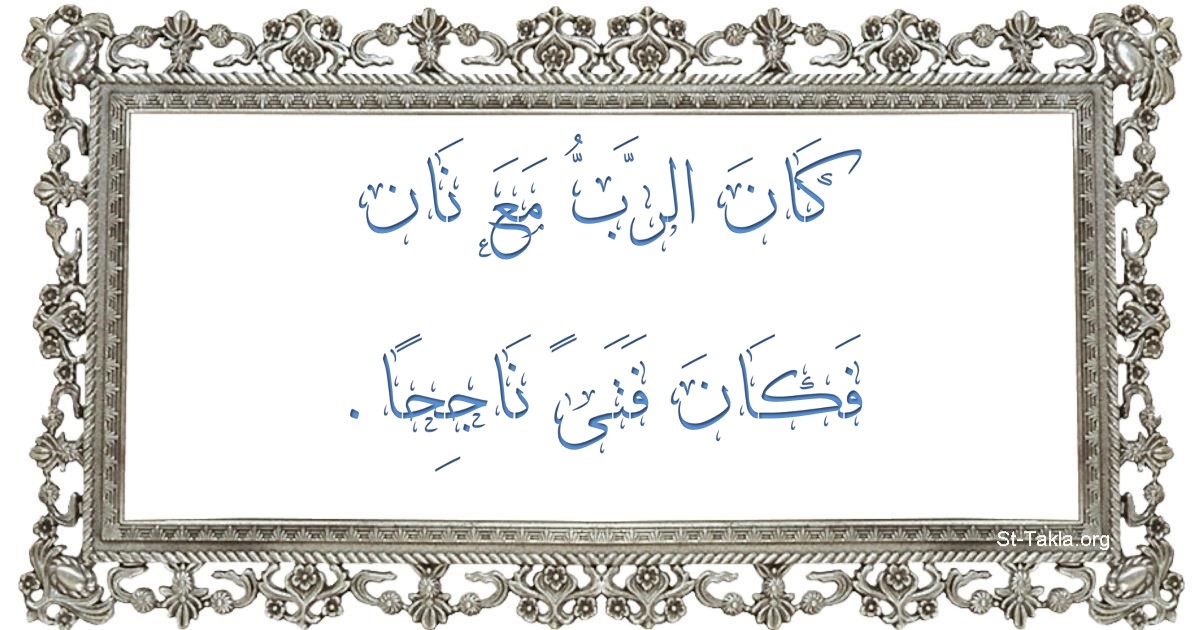 كَانَ الرَّبُّ مَعَ نَان
فَكَانَ فَتَىً نَاجِحًا .
St-Takla.org